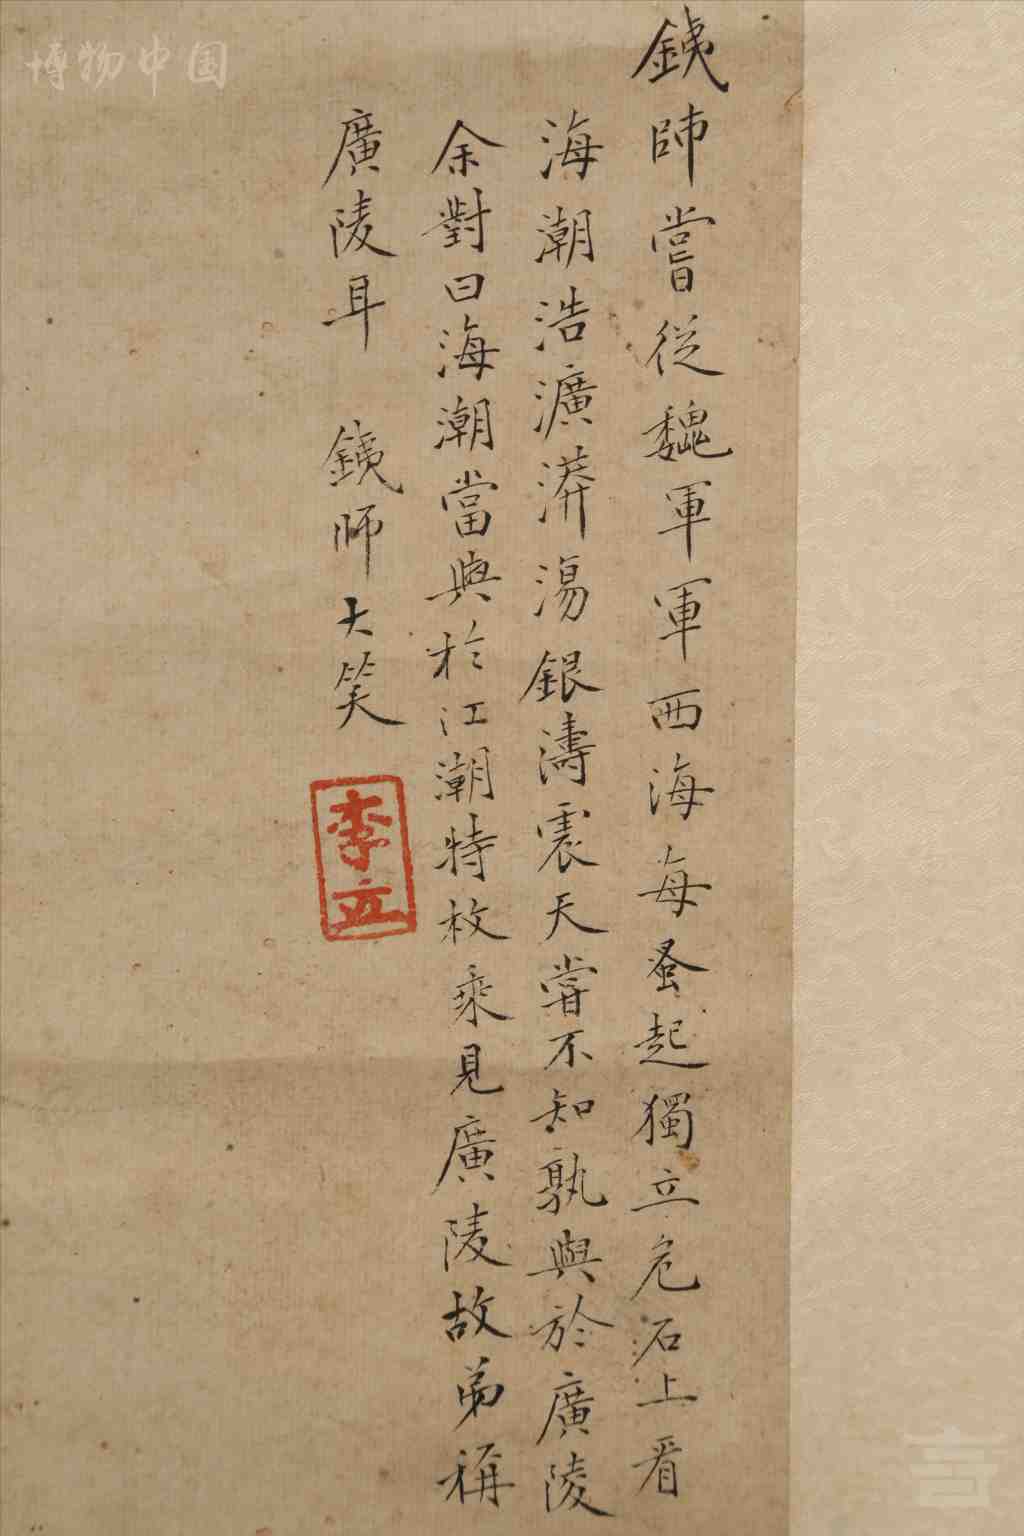 銕師嘗從魏軍軍西海每蚤起獨立危石上看
海潮浩瀇漭漡銀濤震天嘗不知孰與於廣陵
余對曰海潮當與於江潮特枚乘見廣陵故弟稱
廣陵耳 銕師大笑
李立
博物中国